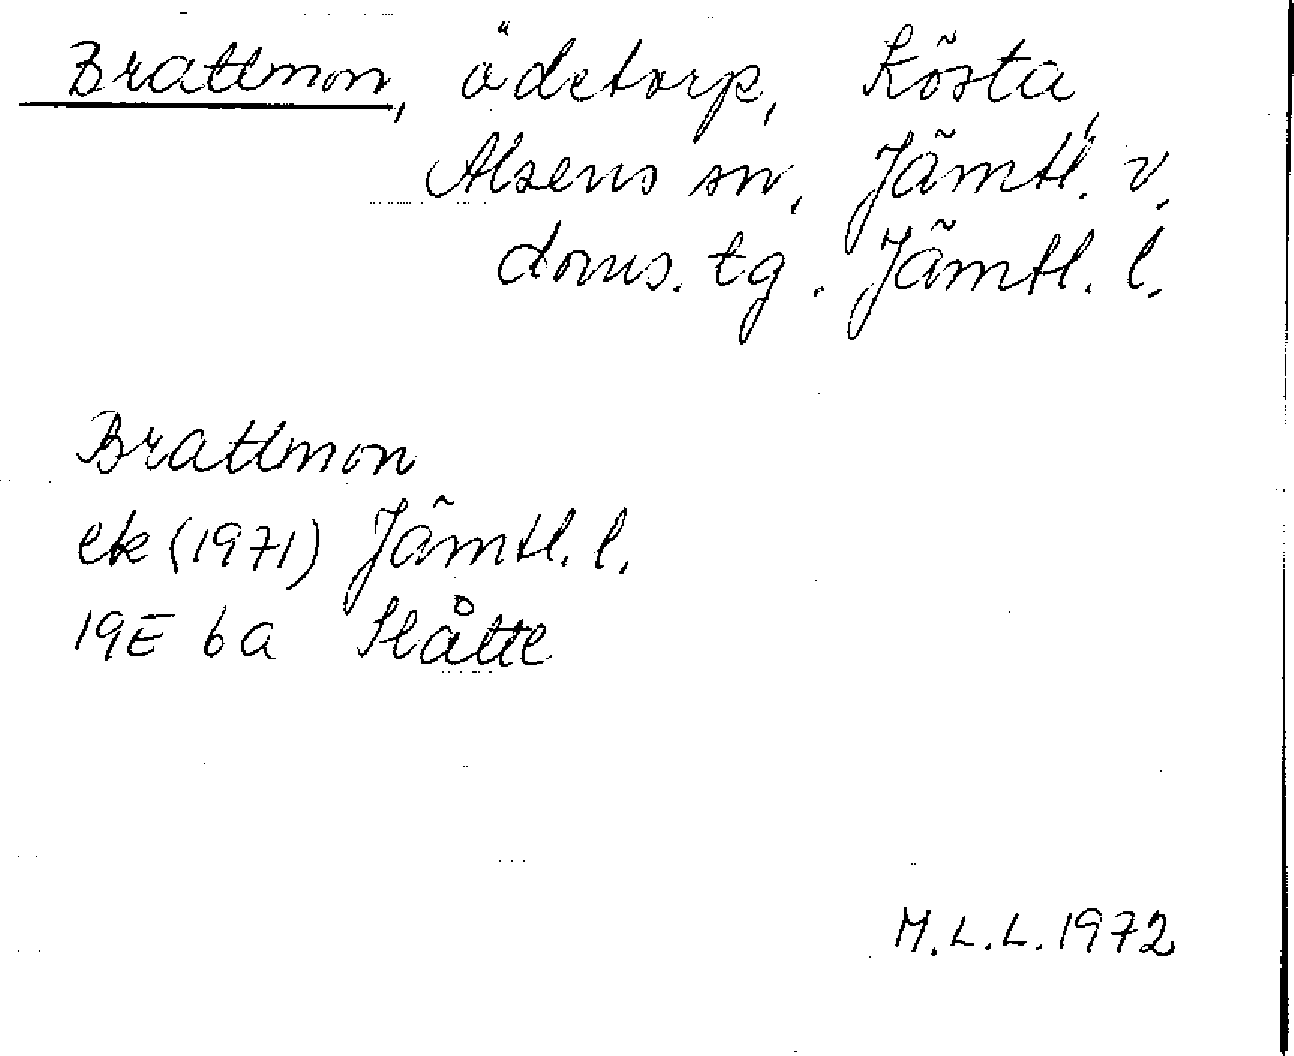 Brattmon, ödetorp, Kösta,
Alsens sn, Jämtl. v.
doms. tg. Jämtl. l.
Brattmon
ek (1971) Jämtl. l.
19E 6a Slåtte
M.L.L. 1972